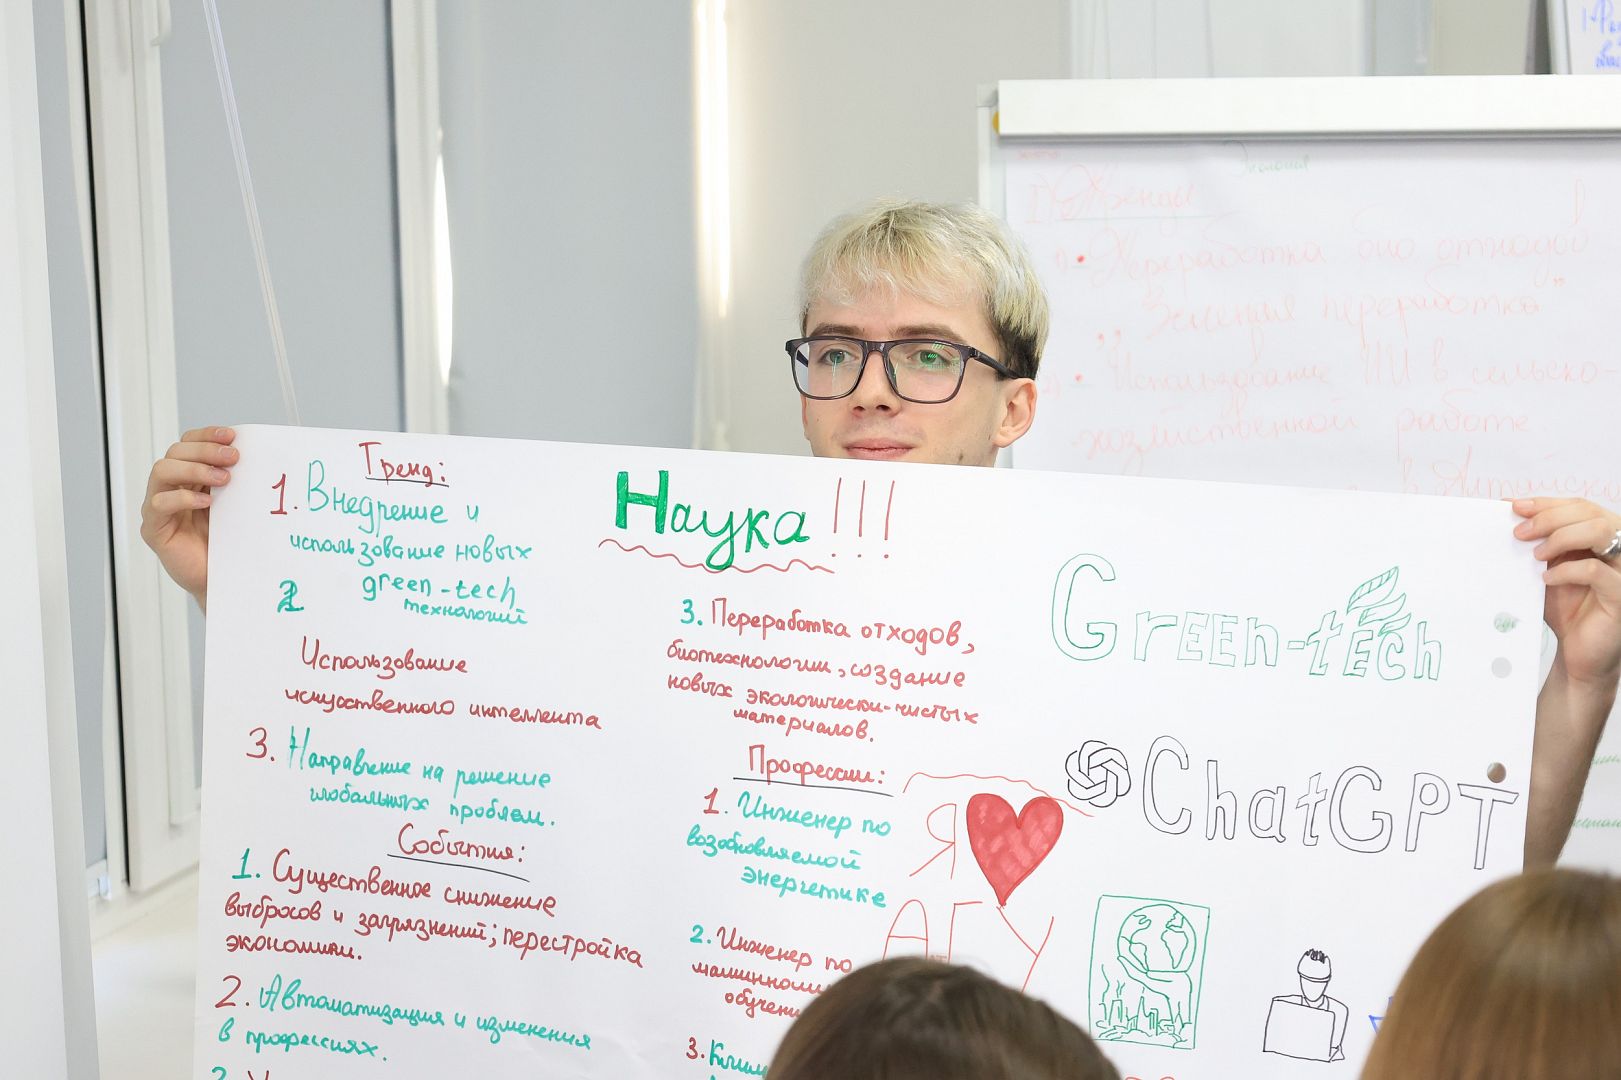 Наука!!!
Тренд:
1. Внедрение и
использование новых
green-tech
технологий
2
Использование
искусственного интеллекта
3. Направление на решение
глобальных проблем.
События:
1. Существенное снижение
выбросов и загрязнений; перестройка
экономики.
2. Автоматизация и изменения
в профессиях.
3. Переработка отходов,
биотехнологии, создание
новых экологически-чистых
материалов.
Профессии:
1. Инженер по
возобновляемой
энергетике
2. Инженер по
3.
Я
АГУ
Green-tech
ChatGPT
Экология
1) Тренды
Переработка био отходов в
„Зеленая переработка"
Использование ИИ в сельско-
-хозяйственной работе.